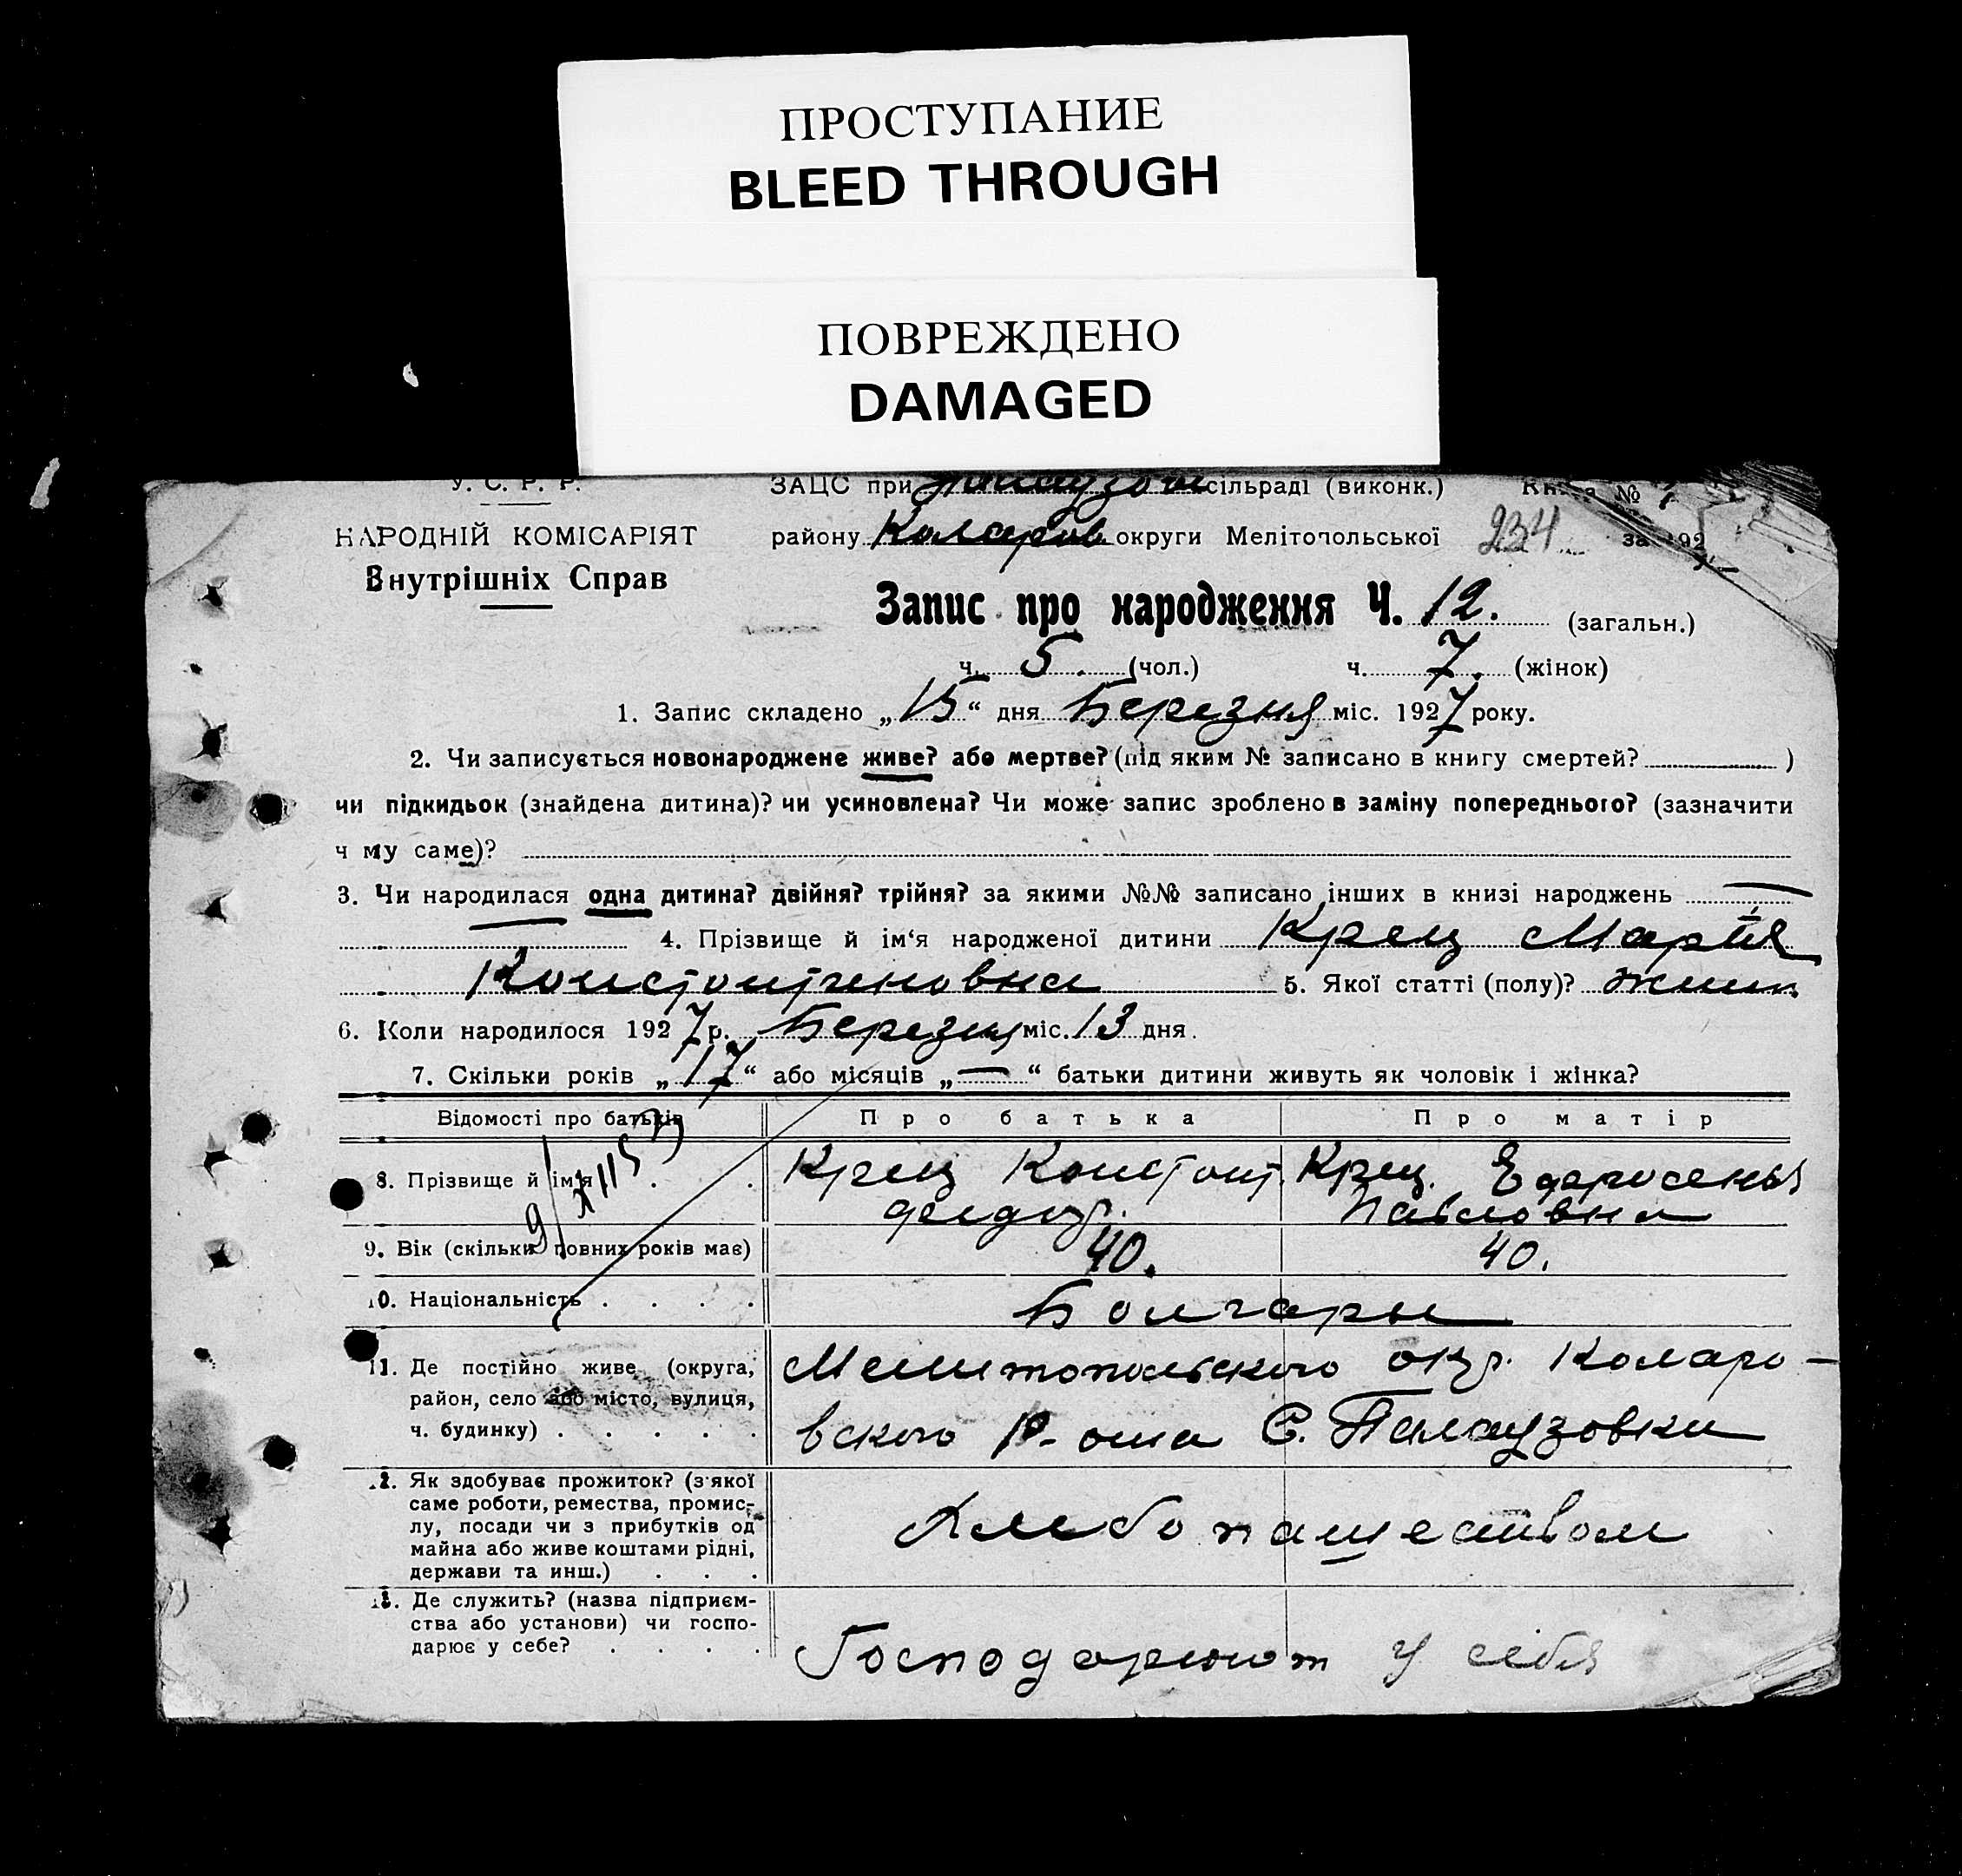 ПРОСТУПАНИЕ
BLEED THROUGH
ПОВРЕЖДЕНО
DAMAGED
У. С. Р. Р.
ЗАЦС при Палаузов сільраді (виконк.) Книга № 7
НАРОДНІЙ КОМІСАРІЯТ
району Коларов округи Мелітопольської 234 за 192
Внутрішніх Справ
Запис про народження Ч. 12. (загальн.)
ч. 5. (чол.) ч. 7. (жінок)
1. Запис складено „15“ дня Березня міс. 1927 року.
2. Чи записується новонароджене живе? або мертве? (під яким № записано в книгу смертей? )
чи підкидьок (знайдена дитина)? чи усиновлена? Чи може запис зроблено в заміну попереднього? (зазначити
ч му саме)?
3. Чи народилася одна дитина? двійня? трійня? за якими №№ записано інших в книзі народжень —
— 4. Прізвище й ім‘я народженої дитини Крец Мария
Константиновна 5. Якої статті (полу)? жин.
6. Коли народилося 1927 р. Березня міс. 13 дня.
7. Скільки років „17“ або місяців „—“ батьки дитини живуть як чоловік і жінка?
Відомості про батьків Про батька Про матір
8. Прізвище й ім‘я . . Крец Констант. Крец. Ефросенья
Феидор. Павловна
9. Вік (скільки повних років має) 40. 40.
10. Національність . . . . Болгары
11. Де постійно живе (округа, район, село або місто, вулиця, ч. будинку) . . . . .
Мелитопольского окр. Коларо-
вского Р-она С. Палаузовки
12. Як здобуває прожиток? (з якої саме роботи, ремества, промис-
лу, посади чи з прибутків од
майна або живе коштами рідні,
держави та инш.) . . .
Хлебопашеством
13. Де служить? (назва підприєм-
ства або установи) чи госпо-
дарює у себе? . . . .
Господарюют у себя